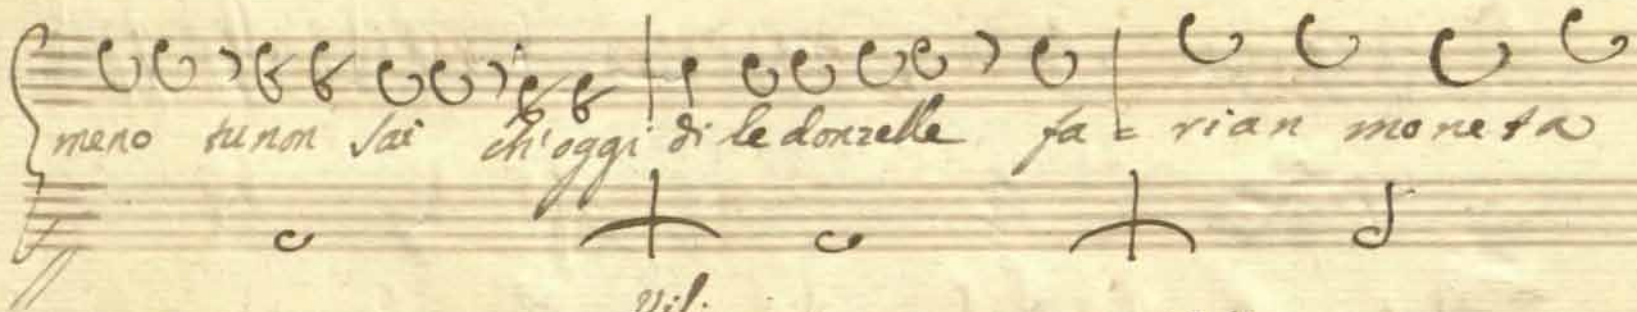 meno tu non sai ch'oggi di le donzelle fa = rian moneta
Vil.